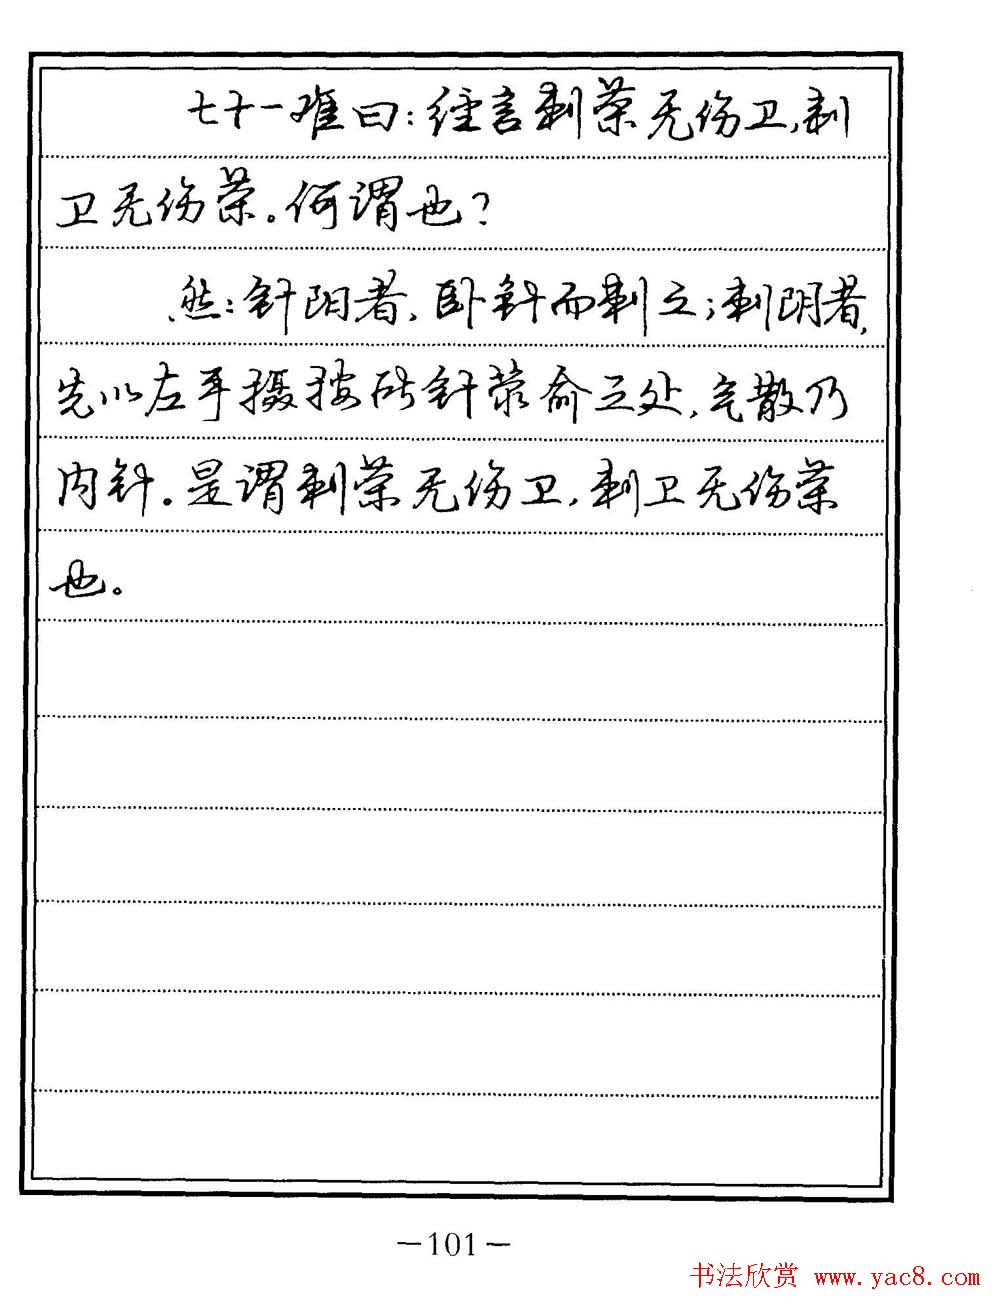 七十一难曰：经言刺荣无伤卫，刺
卫无伤荣。何谓也？
然：针阳者，卧针而刺之；刺阴者，
先以左手摄按所针荥俞之处，气散乃
内针。是谓刺荣无伤卫，刺卫无伤荣
也。
—101—
书法欣赏 www.yac8.com